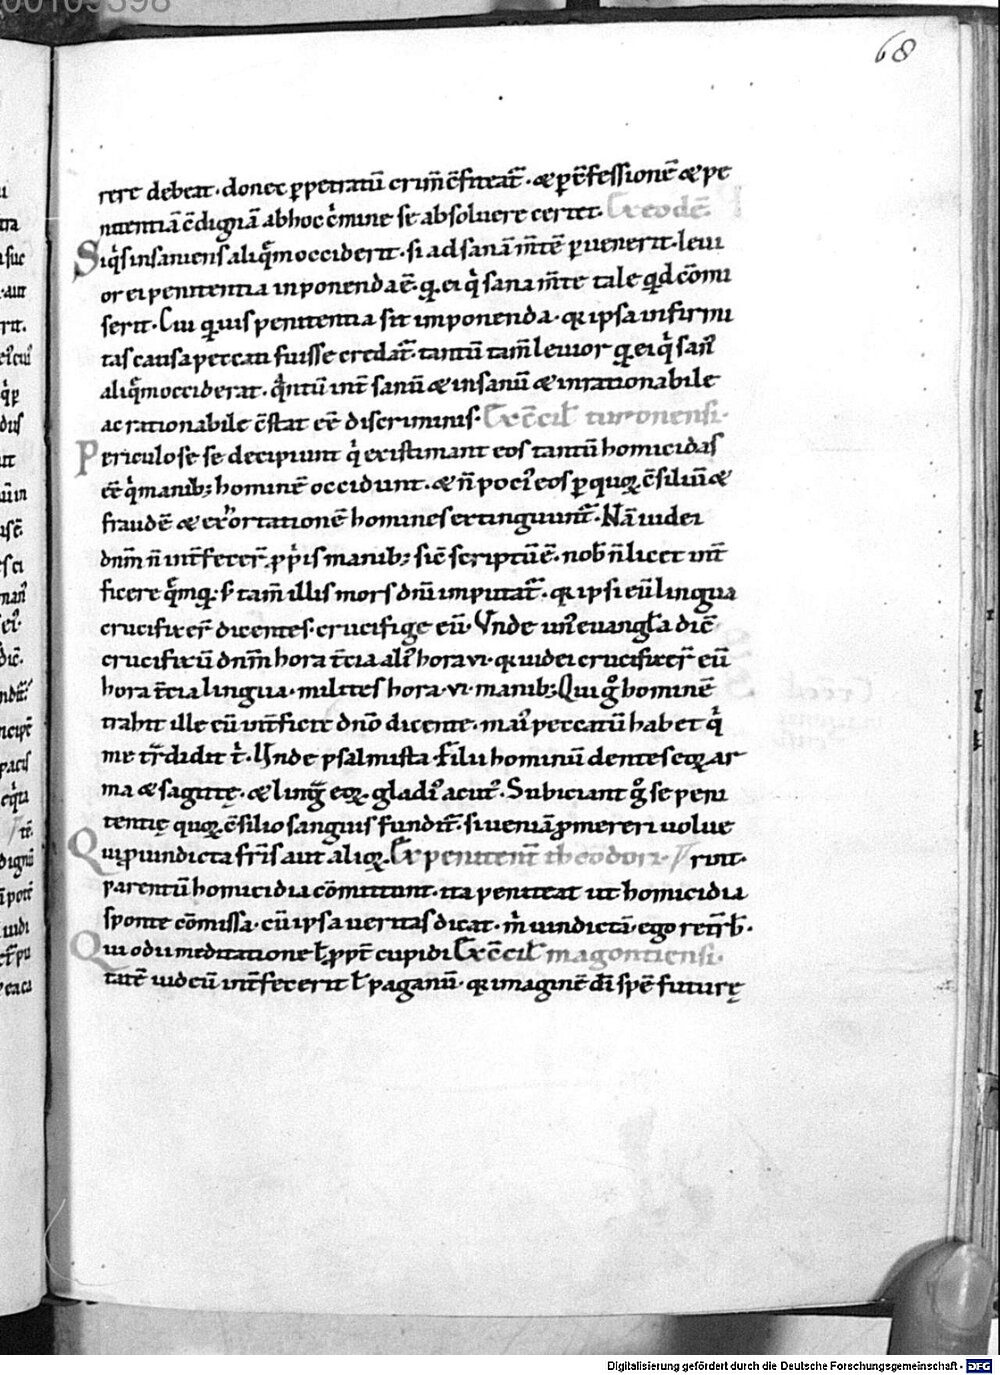 68
rere debeat · donec ꝑpetratū crim̄ c̄fiteat᷑ · & ꝑ c̄fessionē & pe
nitentiā c̄dignā ab hoc c̄mine se absoluere certet · Ex eodē ·
Siqͥs insaniens aliqͣm occiderit · si ad sanā m̄tē ꝑuenerit · leui
or ei penitentia inponenda ē · qͣ ei qͥ sana m̄te tale qͥd cōmi
serit · Cui quis penitentia sit imponenda · qꝛ ipsa infirmi
tas causa peccati fuisse credat᷑ · tantū tam̄ leuior qͣ ei qͥ san᷑
aliqͣm occiderat · qͣntū int̄ sanū & insanū & inrationabile
ac rationabile c̄stat eē discriminis · Ex c̄cil̄ turonensi ·
Periculose se decipiunt qͥ existimant eos tantū homicidas
eē qͥ manib; hominē occidunt · & n̄ poci᷑ eos ꝑ quoꝝ c̄siliū &
fraudē & exortationē homines extinguunt᷑ · Nā iudei
dn̄m n̄ int̄fecer̄ ꝓpͥis manib; sic̄ scriptū ē · nob̄ n̄ licet int̄
ficere qͣmqͣ · s; tam̄ illis mors dn̄i imputat᷑ · qꝛ ipsi eū lingua
crucifixer̄ dicentes · crucifige eū · Vnde un᷑ euangl̄a dic̄
crucifixū dn̄m hora t̄cia ali᷑ hora vi · qꝛ iudei crucifixer̄ eū
hora t̄cia lingua · milites hora · vi · manib; Qui gͦ hominē
tradit ille eū int̄ficit dn̄o dicente · mai᷑ peccatū habet qͥ
me tͣdidit tͥ · Vnde psalmista · Filii hominū dentes eoꝝ ar
ma & sagittę · & lingͣ eoꝝ gladi᷑ acut᷑ · Subiciant gͦ se peni
tentię quoꝝ c̄silio sanguis fundit᷑ · si ueniā ꝓmereri uolue
Qui ꝓ uindicta fr̄is aut alioꝝ Ex penitent̄ theodori · rint ·
parentū homicidia cōmittunt · ita peniteat ut homicidia
sponte cōmissa · cū ipsa ueritas dicat · mͥ uindictā · ego retͥb̄ ·
Qui odii meditatione l̄ ꝓpt̄ cupidi Ex c̄cil̄ magontiensi ·
tatē iudeū int̄fecerit l̄ paganū · qꝛ imaginē dī spē futurę
Digitalisierung gefördert durch die Deutsche Forschungsgemeinschaft · DFG